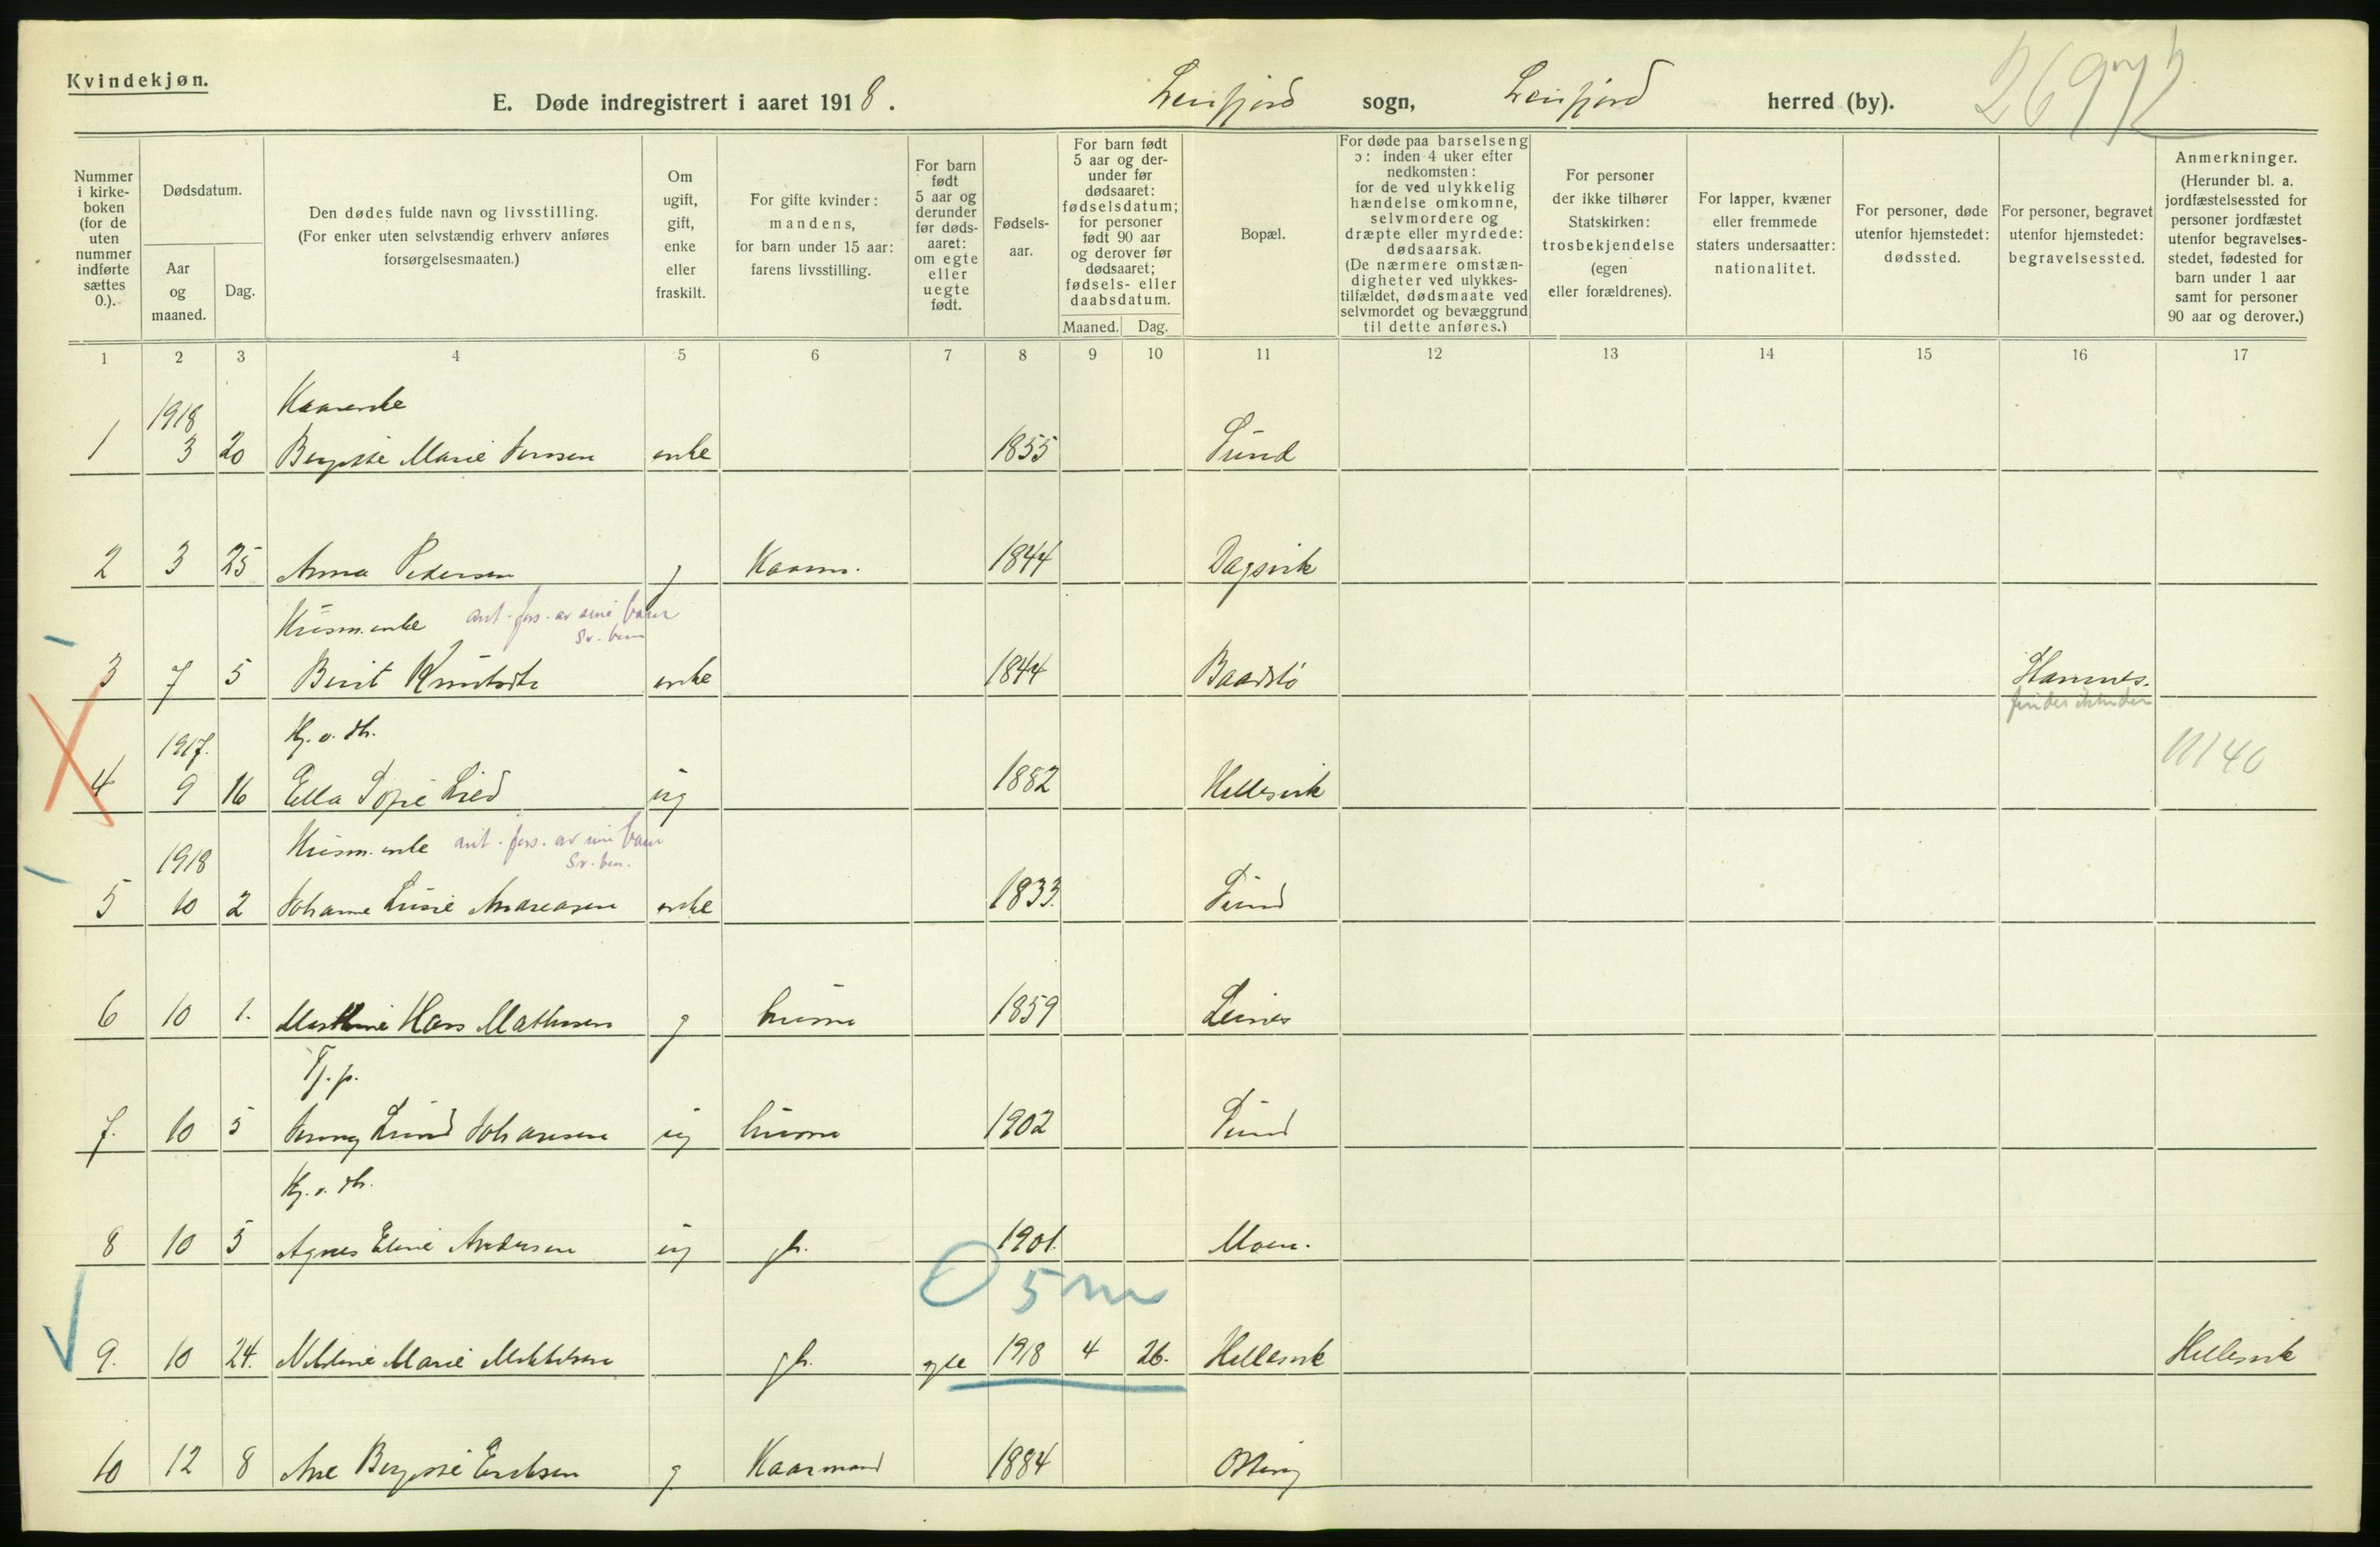 Kvindekjøn.
E. Døde indregistrert i aaret 1918. Leirfjord sogn, Leirfjord herred (by).
Nummer i kirkeboken (for de uten nummer indførte sættes 0.).
Dødsdatum.
Aar og maaned.
Dag.
Den dødes fulde navn og livsstilling.
(For enker uten selvstændig erhverv anføres forsørgelsesmaaten.)
Om ugift, gift, enke eller fraskilt.
For gifte kvinder: mandens, for barn under 15 aar: farens livsstilling.
For barn født 5 aar og derunder før dødsaaret: om egte eller uegte født.
Fødselsaar.
For barn født 5 aar og derunder før dødsaaret: fødselsdatum; for personer født 90 aar og derover før dødsaaret; fødsels- eller daabsdatum.
Maaned. Dag.
Bopæl.
For døde paa barselseng ɔ: inden 4 uker efter nedkomsten: for de ved ulykkelig hændelse omkomne, selvmordere og dræpte eller myrdede: dødsaarsak. (De nærmere omstændigheter ved ulykkestilfældet, dødsmaate ved selvmordet og bevæggrund til dette anføres.)
For personer der ikke tilhører Statskirken: trosbekjendelse (egen eller forældrenes).
For lapper, kvæner eller fremmede staters undersaatter: nationalitet.
For personer, døde utenfor hjemstedet: dødssted.
For personer, begravet utenfor hjemstedet: begravelsessted.
Anmerkninger. (Herunder bl. a. jordfæstelsessted for personer jordfæstet utenfor begravelsesstedet, fødested for barn under 1 aar samt for personer 90 aar og derover.)
1 2 3 4 5 6 7 8 9 10 11 12 13 14 15 16 17
1918 Kaarenke
1 3 20 Marie enke 1855 Sund
2 3 25 Anna Pedersen g Kaarm. 1844 Dagsvik
Husm.enke ant. fors. av sine barn
3 7 5 Berit enke 1844 Baadstø Hamnes.
1917. Hj. v. dh. 11140
4 9 16 Ella Lied ug 1882 Hellesvik
1918 Husm. enke ant. fors. av sine barn
5 10 2 Johanne Andreasen enke 1833. Sund
6 10 1. Hans Mathisen g husm 1859 Leines
Tj. p.
7. 10 5 Lund Johansen ug husm 1902 Sund
Hj. v. dh.
8 10 5 Agnes Andersen ug gb. 1901. Moen.
0 5 m
9. 10 24. Marie Mikkelsen gb. egte 1918 4 26. Hellesvik Hellesvik
10 12 8 Ane Eriksen g Kaarmand 1884